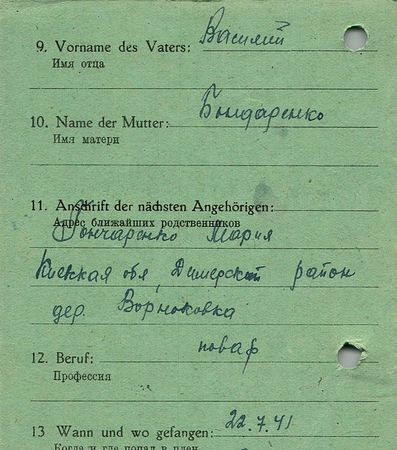 Василий
9. Vorname des Vaters:
Имя отца
Бондаренко
10. Name der Mutter:
Имя матери
11. Anschrift der nächsten Angehörigen:
Адрес ближайших родственников
Гончаренко Мария
Киевская обл, Дымерский район
дер.
повар
12. Beruf:
Профессия
22.7.41
13 Wann und wo gefangen:
Когда и где попал в плен